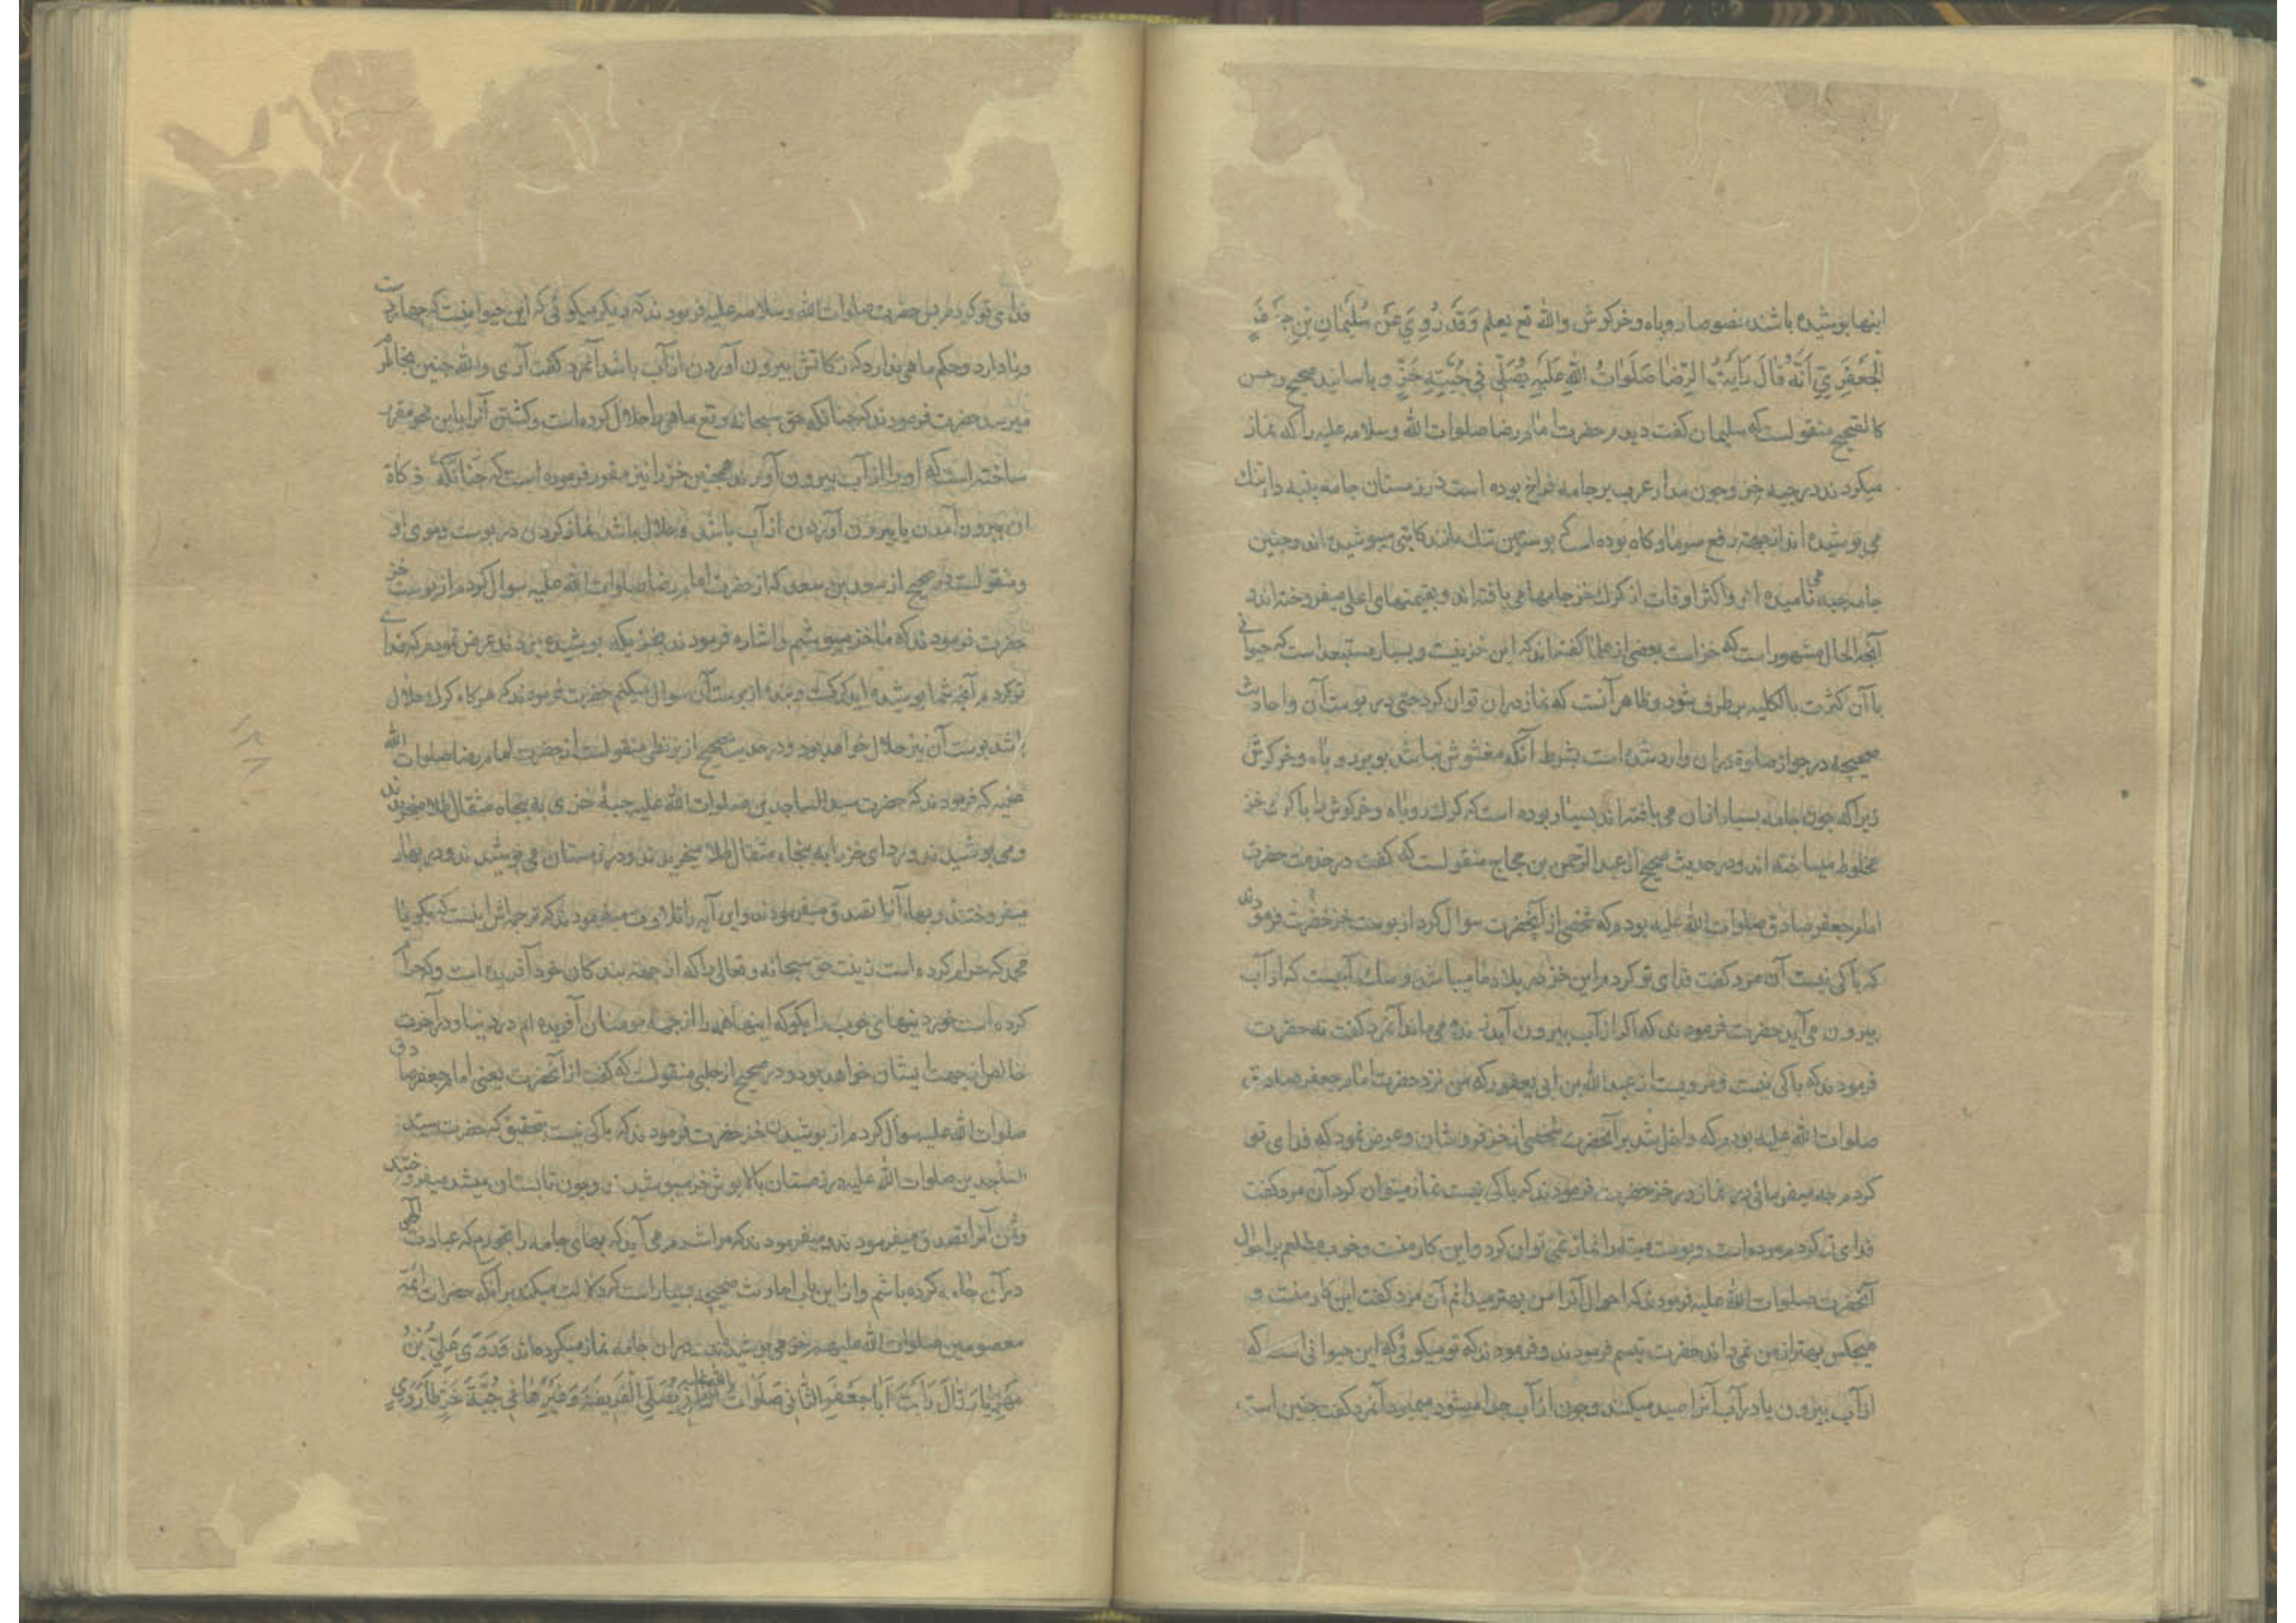 اینها پوشیده باشند خصوصا روباه و خرکوش والله تع یعلم وَقَد رُوِیَ عَن سُلَیمٰانِ بنِ جَعفَرٍ
الجَعفَرِیِّ اَنَّهُ قٰالَ رَاَیتُ الرِّضٰا صَلَوٰاتُ اللهِ عَلَیهِ یُصَلّی فی جُبَّةِ خَزٍّ و باسانید صحیح و حسن
کالصحیح منقولست که سلیمان کفت دیدم حضرت امام رضا صلوات الله وسلامه علیه را که نماز
میکردند در جبه خز و چون مدار عرب بر جامه فراخ بوده است در زمستان جامه پنبه دار تنک
می پوشیده اند از جهة رفع سرما و کاه بوده است که پوستین تنک مانند کاتبی میپوشیده اند و چنین
جامه جبه می نامیده اند و اکثر اوقات از کرک خز جامها می بافته اند و بقیمتهای اعلی میفروخته اند و
آنچه الحال مشهور است که خز است بعضی از علما کفته اند که این خز نیست و بسیار مستبعد است که حیوانی
با آن کثرت بالکلیه بر طرف شود و ظاهر آنست که نماز در ان توان کرد حتی در پوست آن و احادیث
صحیحه در جواز صلوة در ان وارد شده است بشرط آنکه مغشوش نباشد بوبر روباه و خرکوش
زیرا که چون جامه بسیار از ان می بافته اند بسیار بوده است که کرک روباه و خرکوش را با کرک خز
مخلوط میساخته اند و در حدیث صحیح از عبد الرحمن بن حجاج منقولست که کفت در خدمت حضرت
امام جعفر صادق صلوات الله علیه بودم که شخصی از آنحضرت سوال کرد از پوست خز حضرت فرمودند
که باکی نیست آن مرد کفت فدای تو کردم این خز در بلاد ما میباشد و سک آبیست که از آب
بیرون می آید حضرت فرمودند که اکر از آب بیرون آید زنده می ماند آنمرد کفت نه حضرت
فرمودند که باکی نیست و مرویست از عبد الله بن ابی یعفور که من نزد حضرت امام جعفر صادق
صلوات الله علیه بودم که داخل شد بر آنحضرت شخصی از خز فروشان و عرض نمود که فدای تو
کردم چه میفرمائی در نماز در خز حضرت فرمودند که باکی نیست نماز میتوان کرد آن مرد کفت
فدای تو کردم مرده است و پوست میته را نماز نمی توان کرد و این کار منست و خوب مطلعم بر احوال
آنحضرت صلوات الله علیه فرمودند که احوال آنرا من بهتر میدانم آن مرد کفت این کار منست و
هیچکس بهتر از من نمی داند حضرت تبسم فرمودند و فرمودند که تو میکوئی که این حیوانی است که
از آب بیرون یا در آب آنرا صید میکنند و چون از آب جدا میشود میمیرد آنمرد کفت چنین است
فدای تو کردم پس حضرت صلوات الله وسلامه علیه فرمودند که دیکر میکوئی که این حیوانیست که چهار دست
و پا دارد و حکم ماهی ندارد که زکاتش بیرون آوردن از آب باشد آنمرد کفت آری والله چنین بخاطرم
میرسد حضرت فرمودند که چنانکه حق سبحانه وتع ماهی را حلال کرده است و کشتن آنرا باین نحو مقرر
ساخته است که او را از آب بیرون آورند همچنین خز را نیز مقرر فرموده است که چنانکه ذکاة
ان بیرون آمدن یا بیرون آوردن از آب باشد و حلال باشد نماز کردن در پوست و موی او
و منقولست در صحیح از سعد بن سعد که از حضرت امام رضا صلوات الله علیه سوال کردم از پوست خز
حضرت فرمودند که ما خز میپوشیم و اشاره فرمودند بخزیکه پوشیده بودند عرض نمودم که فدای
تو کردم آنچه شما پوشیده اید کرکست و بنده از پوست آن سوال میکنم حضرت فرمودند که هر کاه کرک حلال
باشد پوست آن نیز حلال خواهد بود و در حدیث صحیح از بزنطی منقولست از حضرت امام رضا صلوات الله
علیه که فرمودند که حضرت سید الساجدین صلوات الله علیه جبهٔ خزی به پنجاه مثقال طلا میخریدند
و می پوشیدند و ردای خز را به پنجاه مثقال طلا میخریدند و در زمستان می پوشیدند و در بهار
میفروختند و بهاء آنرا تصدق میفرمودند و این آیه را تلاوت میفرمودند که ترجمه اش اینست که بکو یا
محمد که حرام کرده است زینت حق سبحانه وتعالی را که از جهة بندکان خود آفریده است و که حرام
کرده است خوردنیهای خوب را بکو که اینها همه را از جهة مومنان آفریده ام در دنیا و در آخرت
خالص از جهت ایشان خواهد بود و در صحیح از حلبی منقولست که کفت از آنحضرت یعنی امام جعفر صادق
صلوات الله علیه سوال کردم از پوشیدن خز حضرت فرمودند که باکی نیست بتحقیق که حضرت سید
الساجدین صلوات الله علیه در زمستان بالا پوش خز میپوشیدند و چون تابستان میشد میفروختند
و ثمن آنرا تصدق میفرمودند و میفرمودند که مرا شرم می آید که بهای جامه را بخورم که عبادت الهی
در آن جامه کرده باشم و از این باب احادیث صحیحه بسیار است که دلالت میکند بر آنکه حضرات ائمه
معصومین صلوات الله علیهم خز می پوشیدند و در ان جامه نماز میکرده اند وَرَوَی عَلِیُّ بنُ
مَهزِیٰارَ قٰالَ رَاَیتُ اَبٰا جَعفَرٍ الثّانی صَلَوٰاتُ اللهِ عَلَیهِ یُصَلِّی الفَریضَةَ وَغَیرَهٰا فی جُبَّةِ خَزٍّ طٰارُوِیٍّ